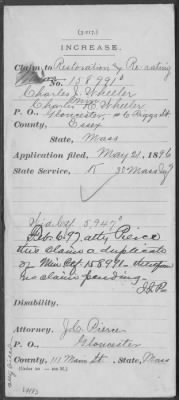 (3-017.)
INCREASE.
Claim to Restoration & Re-rating
No. 158991
Charles J. Wheeler
Charles H. Wheeler
P. O., Gloucester, #6 Riggs St.
County, Essex
State, Mass
Application filed, May 21, 1896
State Service, K 30 Mass Inf
Feb. 6, 97, atty Pierce
this claim a duplicate
of Min Ctf. 158991
no claim pending
Disability,
Attorney, J. C. Pierce
Gloucester
County, 111 Main St., State, Mass